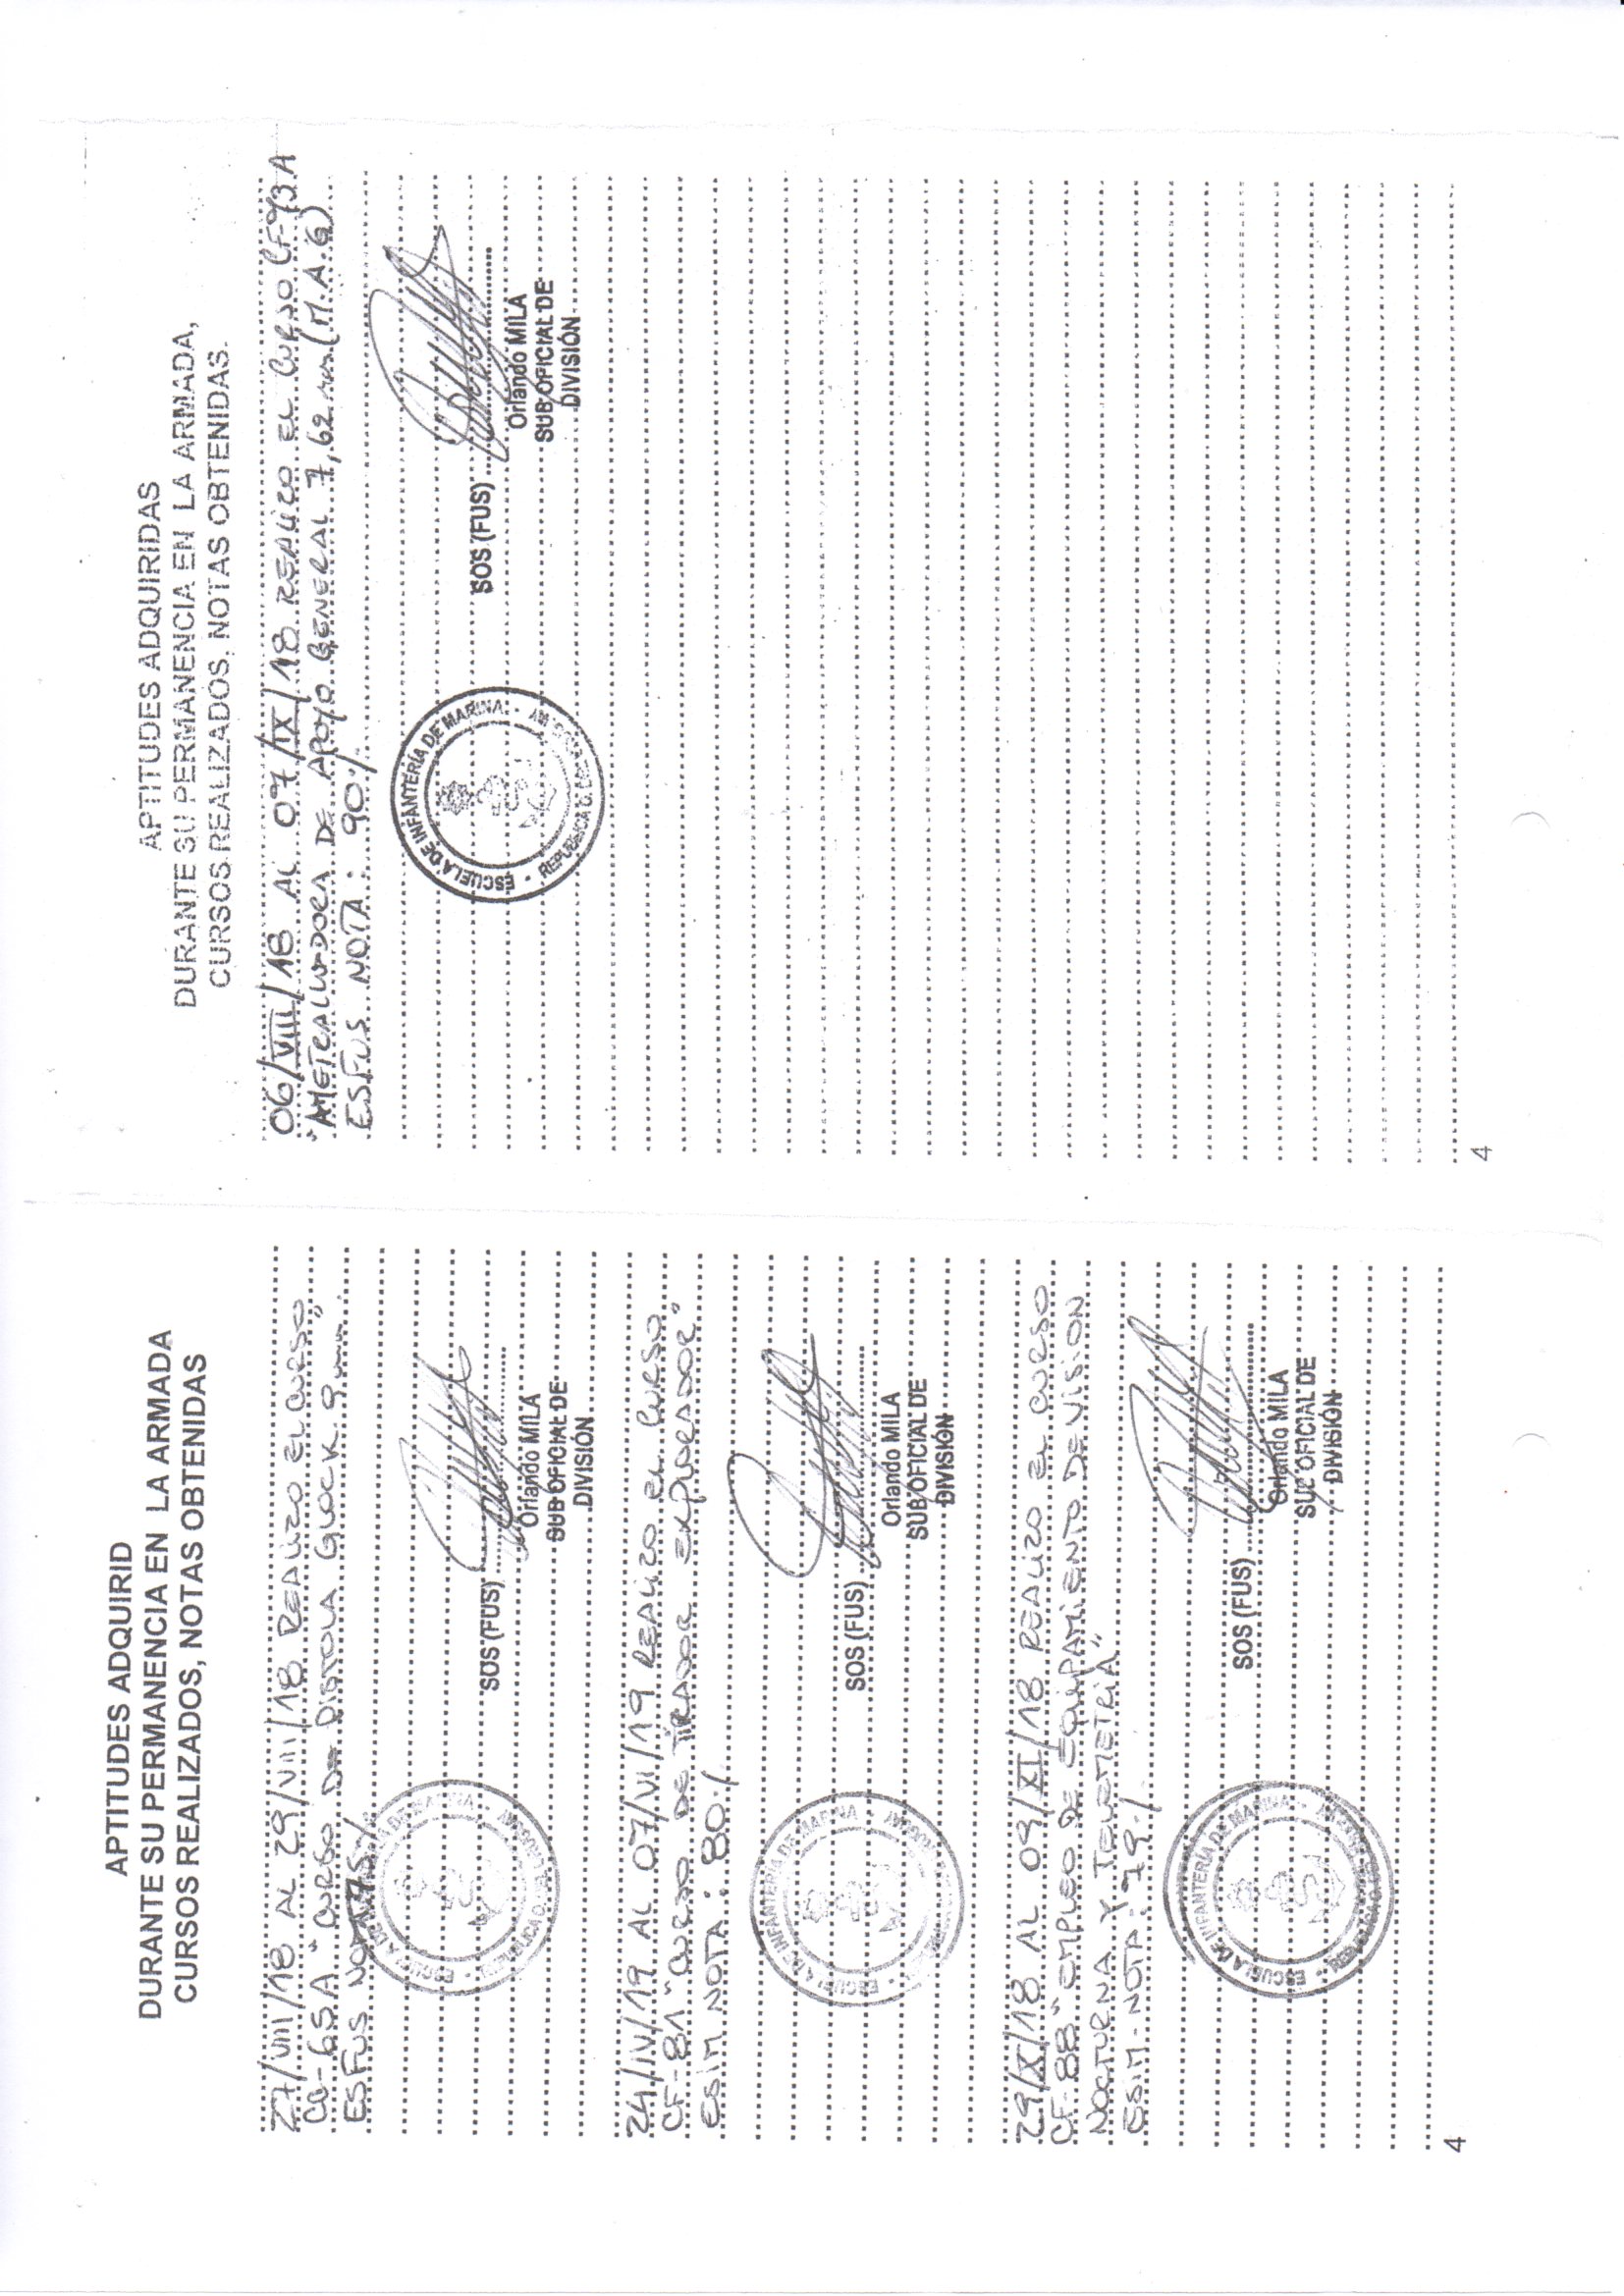 APTITUDES ADQUIRID
DURANTE SU PERMANENCIA EN LA ARMADA
CURSOS REALIZADOS, NOTAS OBTENIDAS
27/VIII/18 AL 29/VIII/18 REALIZO EL CURSO
CC-65A "CURSO DE PISTOLA GLOCK 9mm".
ESFUS NOTA 75%
ESCUELA DE
REPUBLICA O. DEL URUGUAY
SOS (FUS)
Orlando MILA
SUB OFICIAL DE
DIVISIÓN
24/IV/19 AL 07/VI/19 REALIZO EL CURSO
CF-81 "CURSO DE TIRADOR EXPLORADOR"
ESIM NOTA: 80%
ESCUELA DE INFANTERÍA DE MARINA
SOS (FUS)
Orlando MILA
SUB OFICIAL DE
DIVISIÓN
29/X/18 AL 09/XI/18 REALIZO EL CURSO
CF-88 "EMPLEO DE EQUIPAMIENTO DE VISION
NOCTURNA Y TELEMETRIA"
ESIM-NOTA: 79%
ESCUELA DE INFANTERÍA DE MARINA
REPUBLICA O. DEL URUGUAY
SOS (FUS)
Orlando MILA
SUB OFICIAL DE
DIVISIÓN
4
APTITUDES ADQUIRIDAS
DURANTE SU PERMANENCIA EN LA ARMADA,
CURSOS REALIZADOS, NOTAS OBTENIDAS.
06/VIII/18 AL 07/IX/18 REALIZO EL CURSO CF-93A
"AMETRALLADORA DE APOYO GENERAL 7,62 mm (M.A.G)
ESFUS NOTA: 90%
ESCUELA DE INFANTERÍA DE MARINA
REPUBLICA O. DEL URUGUAY
SOS (FUS)
Orlando MILA
SUB OFICIAL DE
DIVISIÓN
4